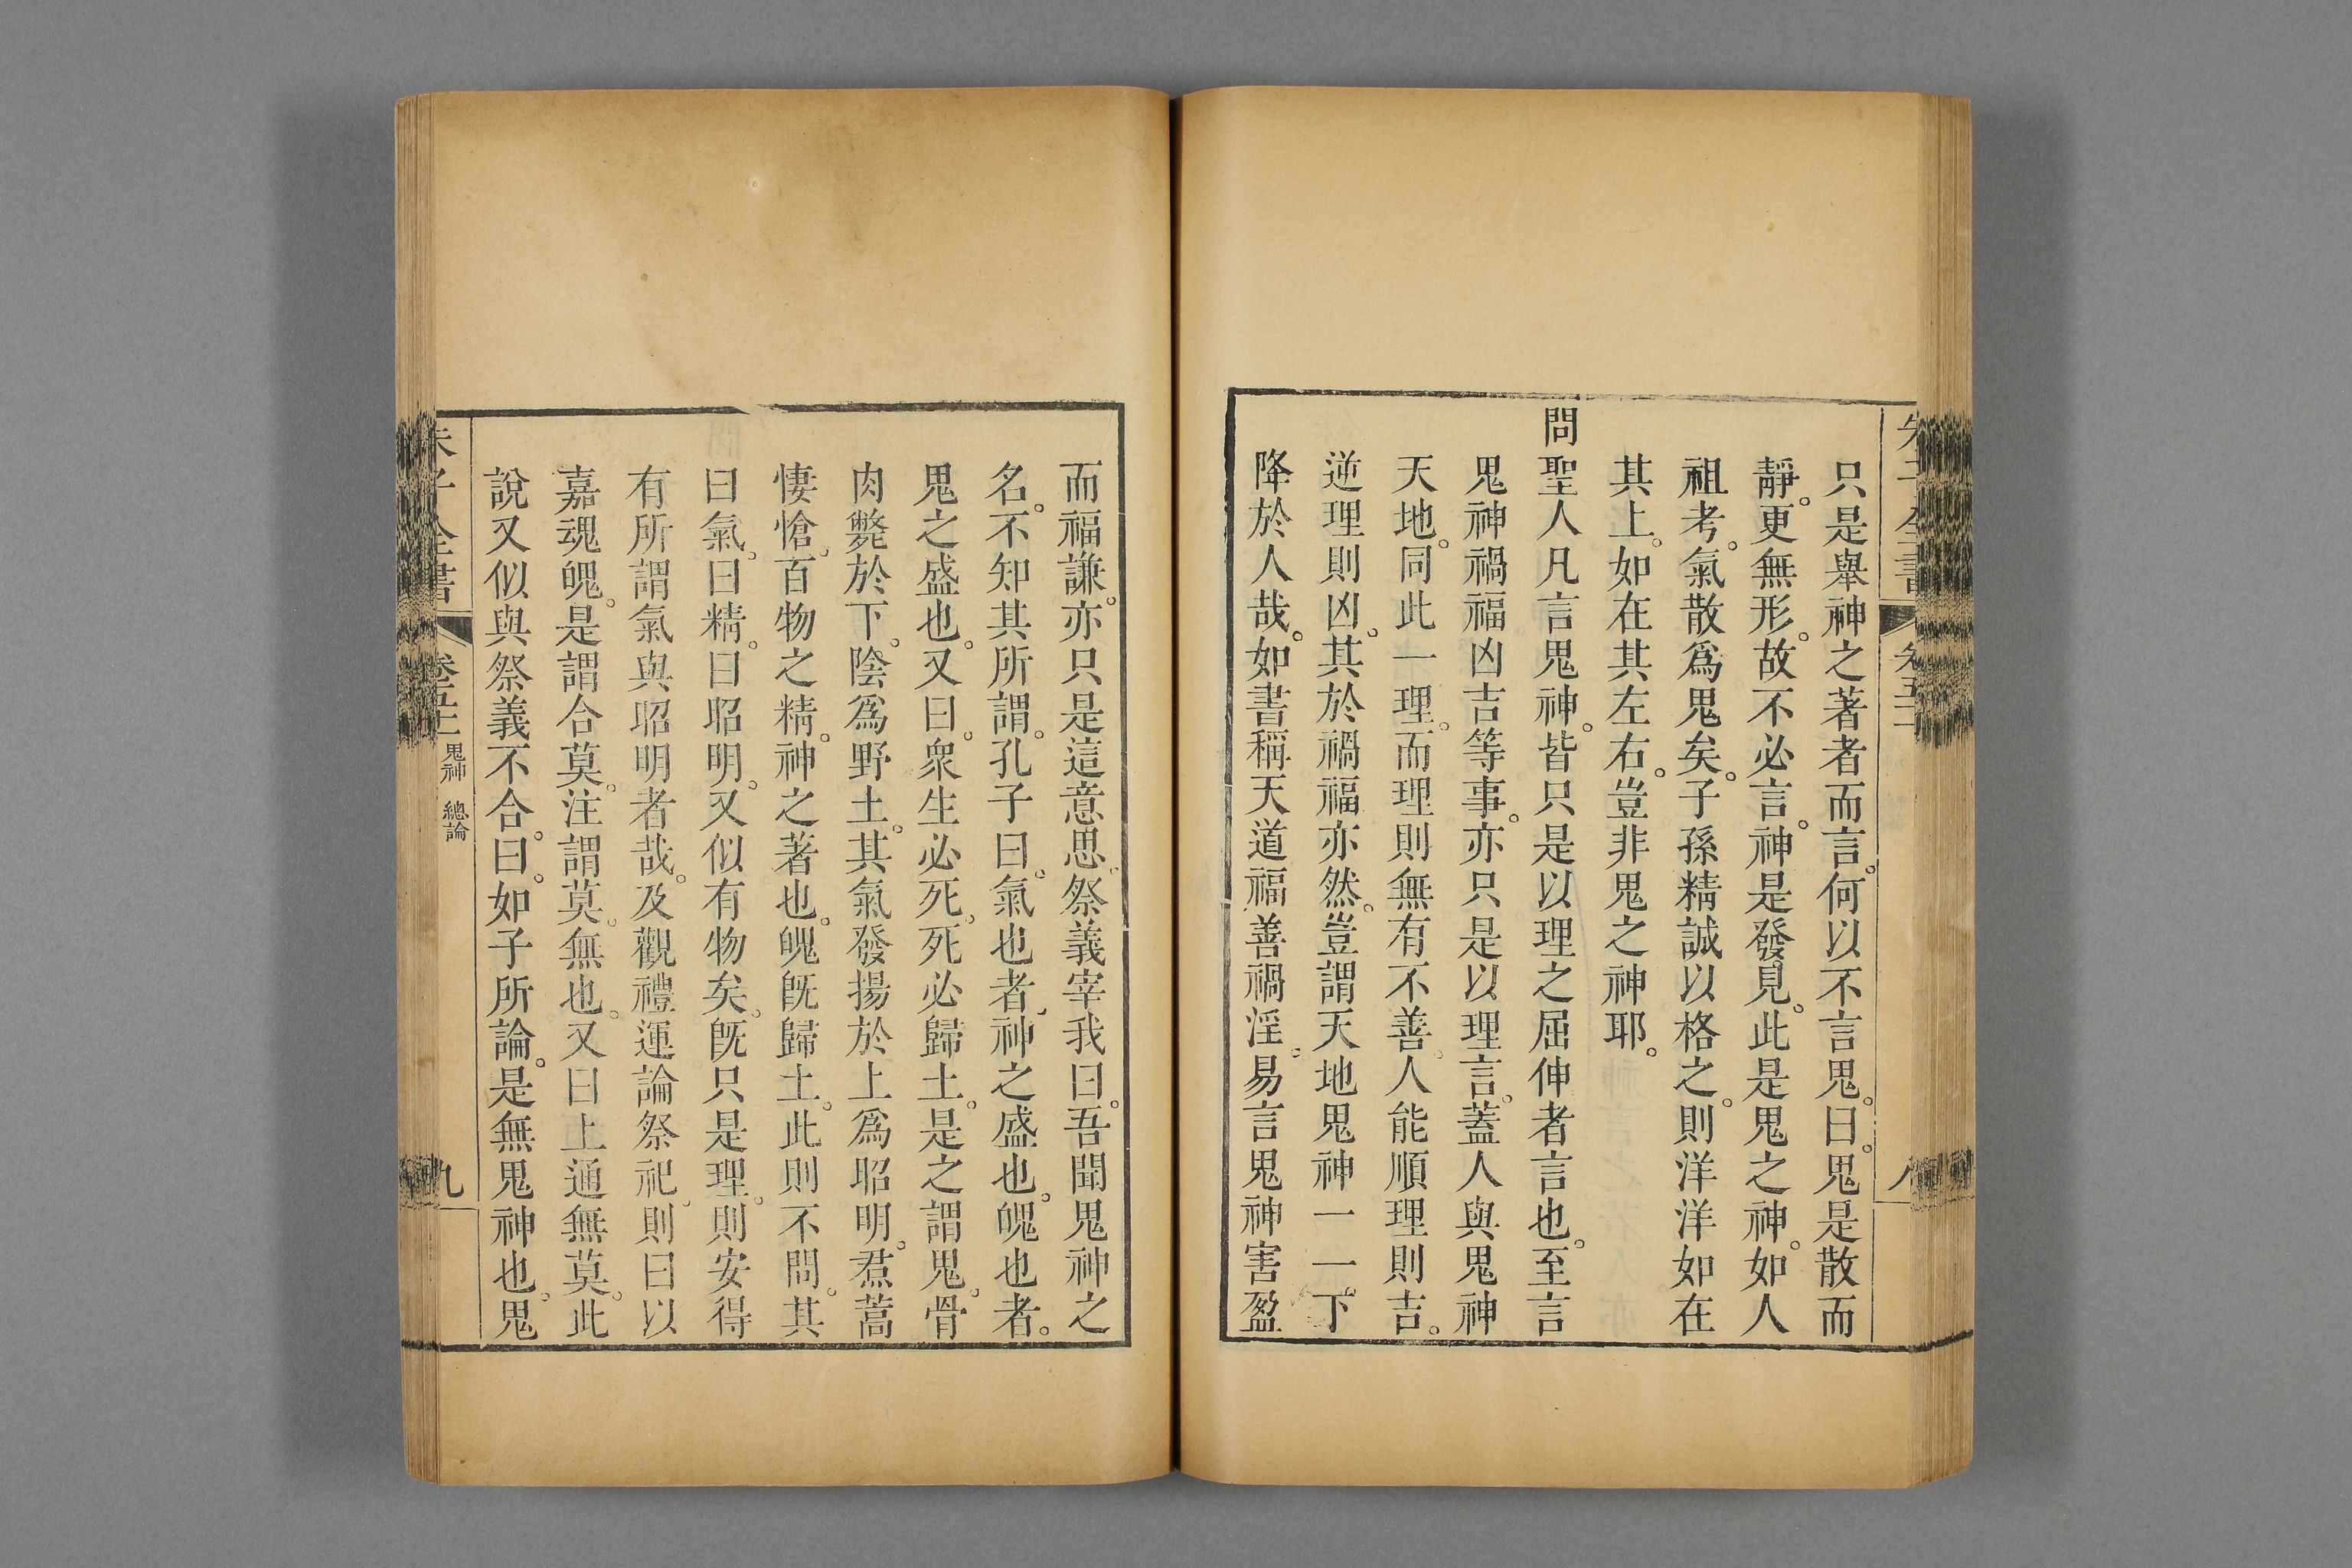 只是舉神之著者而言。何以不言鬼。曰。鬼是散而
靜。更無形。故不必言。神是發見。此是鬼之神。如人
祖考。氣散爲鬼矣。子孫精誠以格之。則洋洋如在
其上。如在其左右。豈非鬼之神耶。
問聖人凡言鬼神。皆只是以理之屈伸者言也。至言
鬼神禍福凶吉等事。亦只是以理言。蓋人與鬼神
天地。同此一理。而理則無有不善。人能順理則吉。
逆理則凶。其於禍福亦然。豈謂天地鬼神一一。下
降於人哉。如書稱天道福善禍淫。易言鬼神害盈
朱子全書
卷五十一
八
而福謙。亦只是這意思。祭義宰我曰。吾聞鬼神之
名。不知其所謂。孔子曰。氣也者。神之盛也。魄也者。
鬼之盛也。又曰。衆生必死。死必歸土。是之謂鬼。骨
肉斃於下。陰爲野土。其氣發揚於上爲昭明。焄蒿
悽愴。百物之精。神之著也。魄旣歸土。此則不問。其
曰氣。曰精。曰昭明。又似有物矣。旣只是理。則安得
有所謂氣與昭明者哉。及觀禮運論祭祀。則曰以
嘉魂魄。是謂合莫。注謂莫。無也。又曰上通無莫。此
說又似與祭義不合。曰。如子所論。是無鬼神也。鬼
朱子全書
卷五十一
鬼神 總論
九